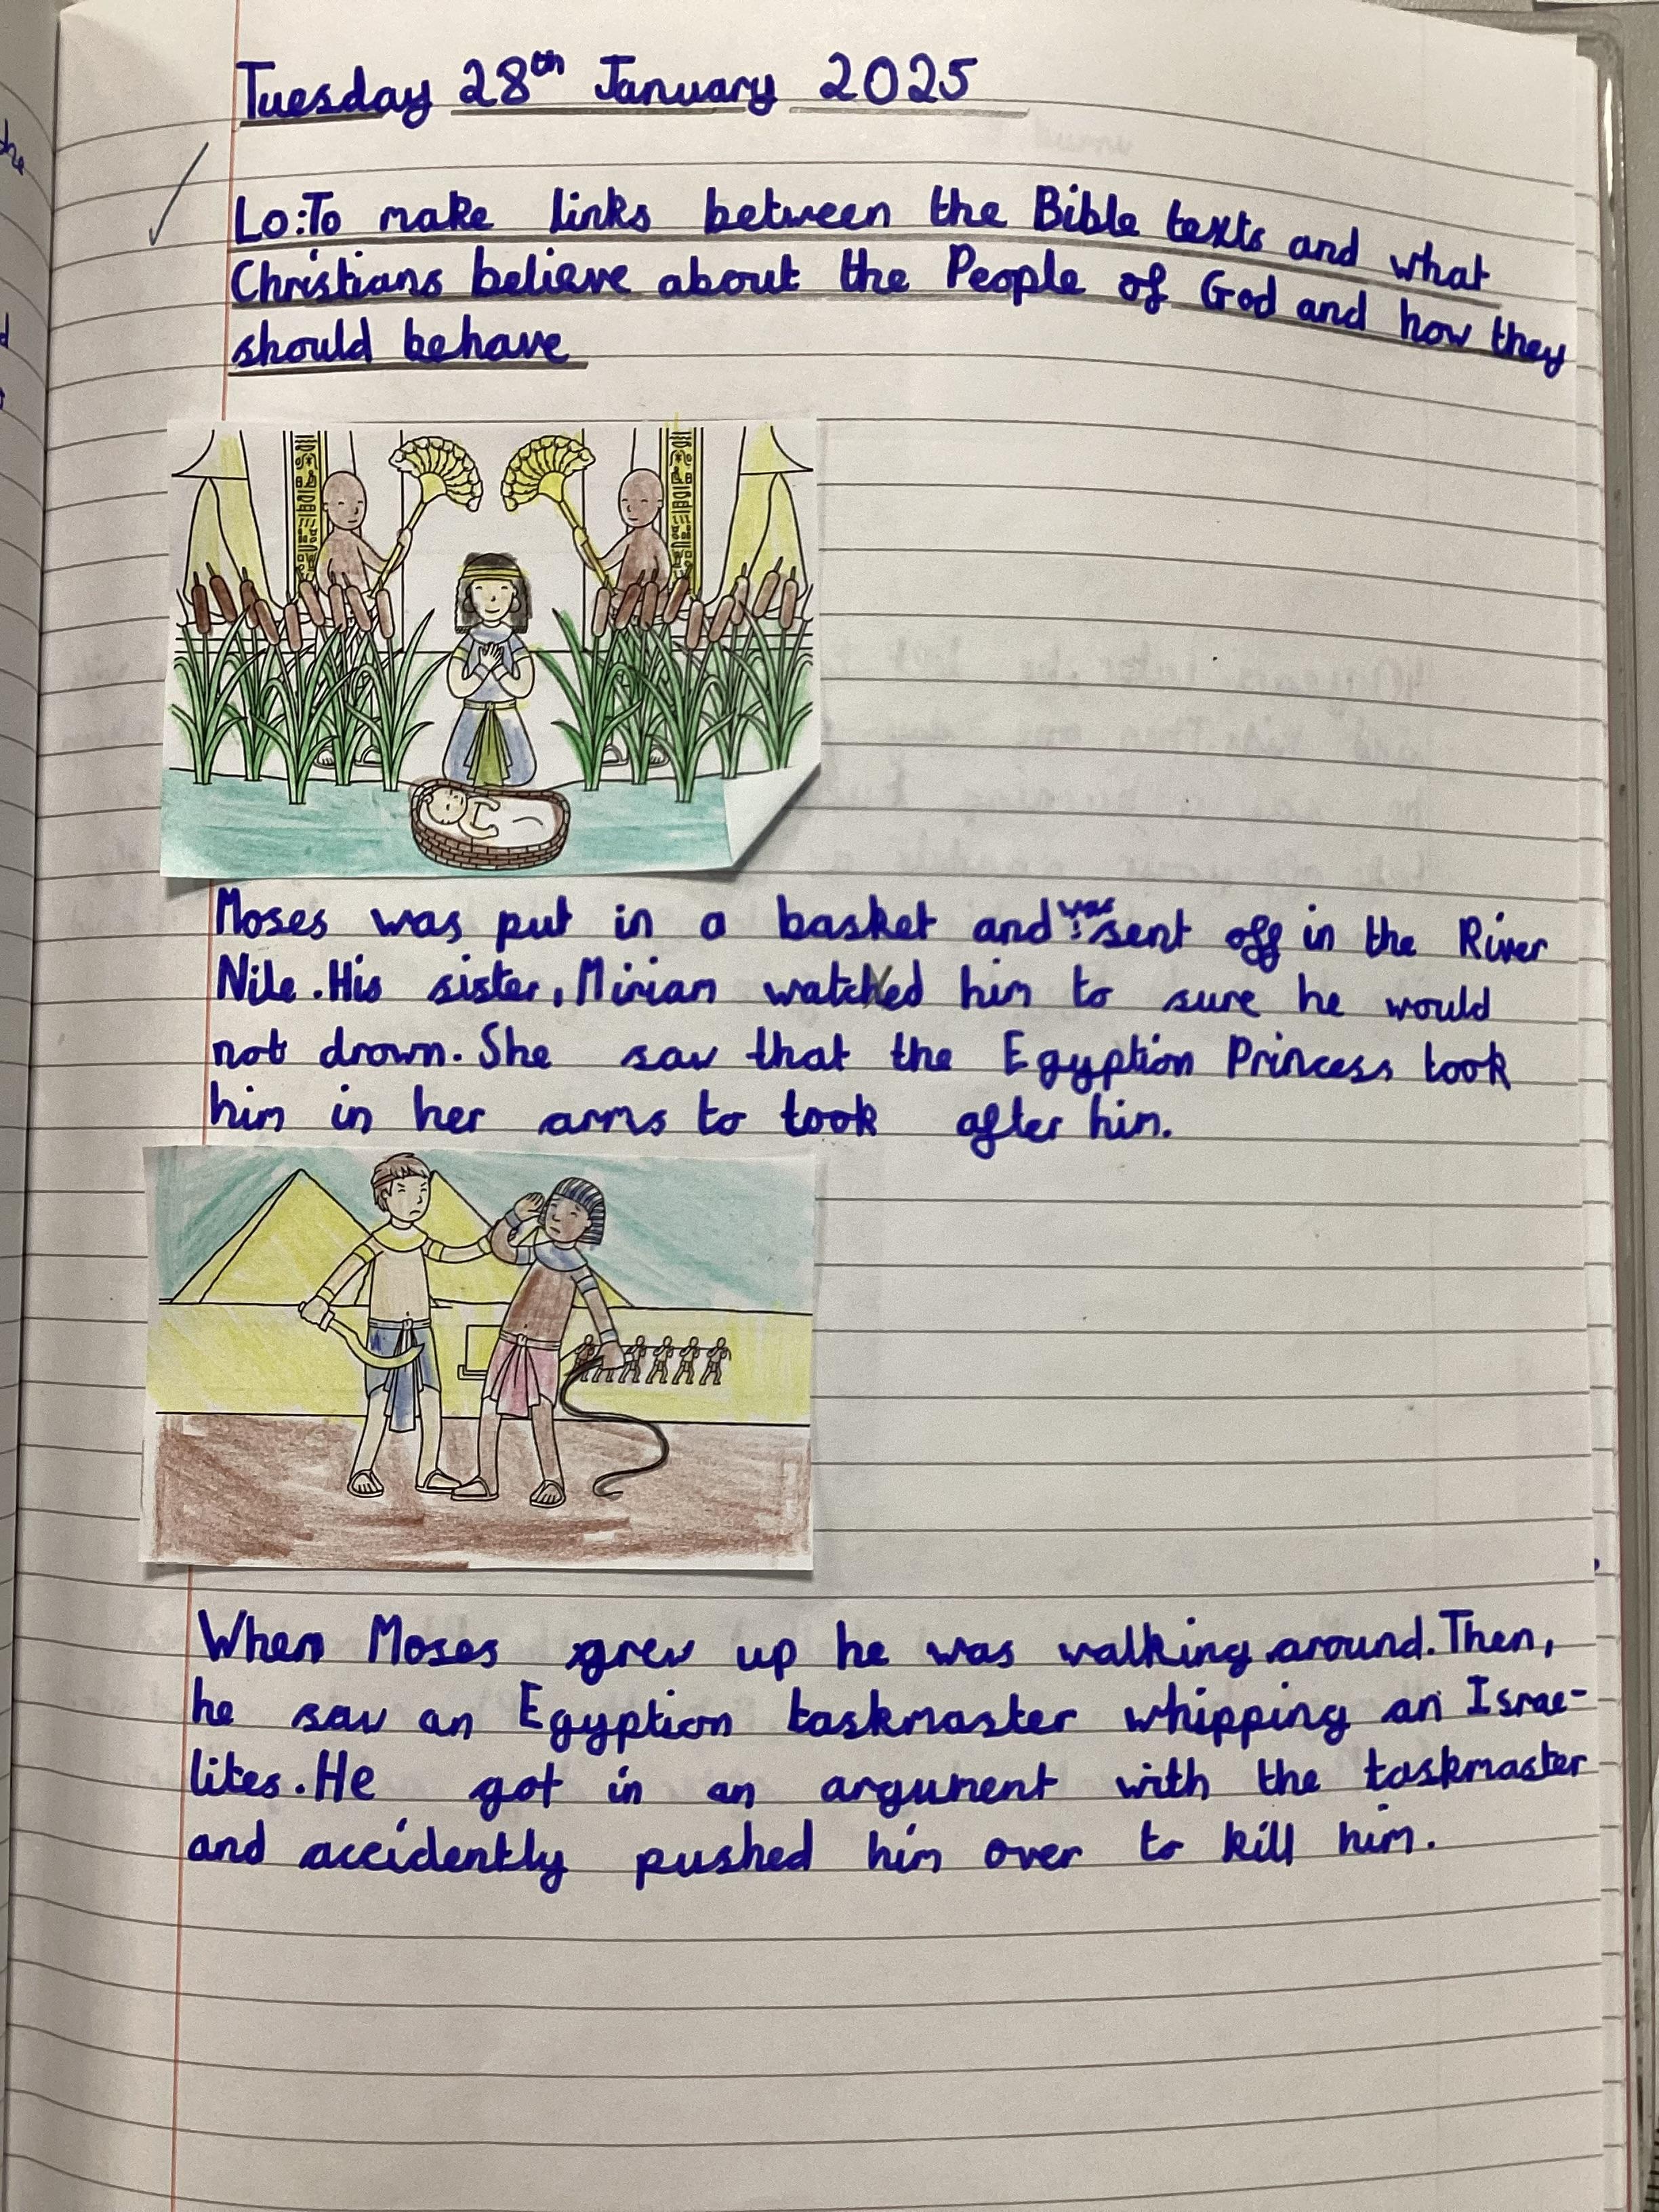 Tuesday 28th January 2025
Lo:To make links between the Bible texts and what
Christians believe about the People of God and how they
should behave
Moses was put in a basket and was sent off in the River
Nile. His sister, Mirian watched him to sure he would
not drown. She saw that the Egyption Princess took
him in her arms to took after him.
When Moses grew up he was walking around. Then,
he saw an Egyption taskmaster whipping an Israe-
lites. He got in an argument with the taskmaster
and accidently pushed him over to kill him.